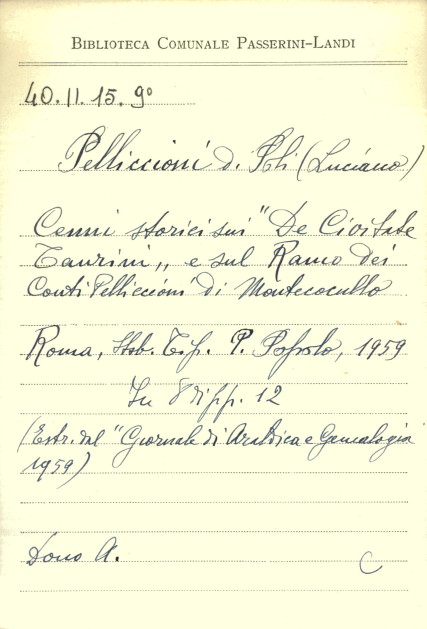 BIBLIOTECA COMUNALE PASSERINI-LANDI
40.II.15.9°
Pelliccioni di Poli (Luciano)
Cenni storici sui "De Civitate
Taurini„ e sul Ramo dei
Conti Pelliccioni di Montecocullo
Roma, Stab. Tip. P. Popolo, 1959
In 8 di pp. 12
(Estr. dal "Giornale di Araldica e Genealogia
1959)
Dono A.
C